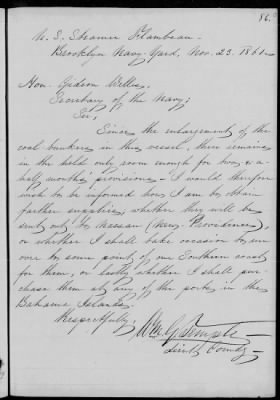 86.
U. S. Steamer Flambeau
Brooklyn Navy-Yard, Nov. 23. 1861
Hon. Gideon Welles,
Secretary of the Navy;
Sir,
Since the enlargement of the
coal bunkers in this vessel, there remains
in the hold only room enough for two, & a-
half months' provisions - I would therefore
wish to be informed how I am to obtain
farther supplies, whether they will be
sent out to Nassau (New-Providence),
or whether I shall take occasion to run
over to some point of our Southern coast
for them, or lastly whether I shall pur-
chase them at any of the ports in the
Bahama Islands.
Respectfully,
Wm. G. Temple
Lieut. Comdg